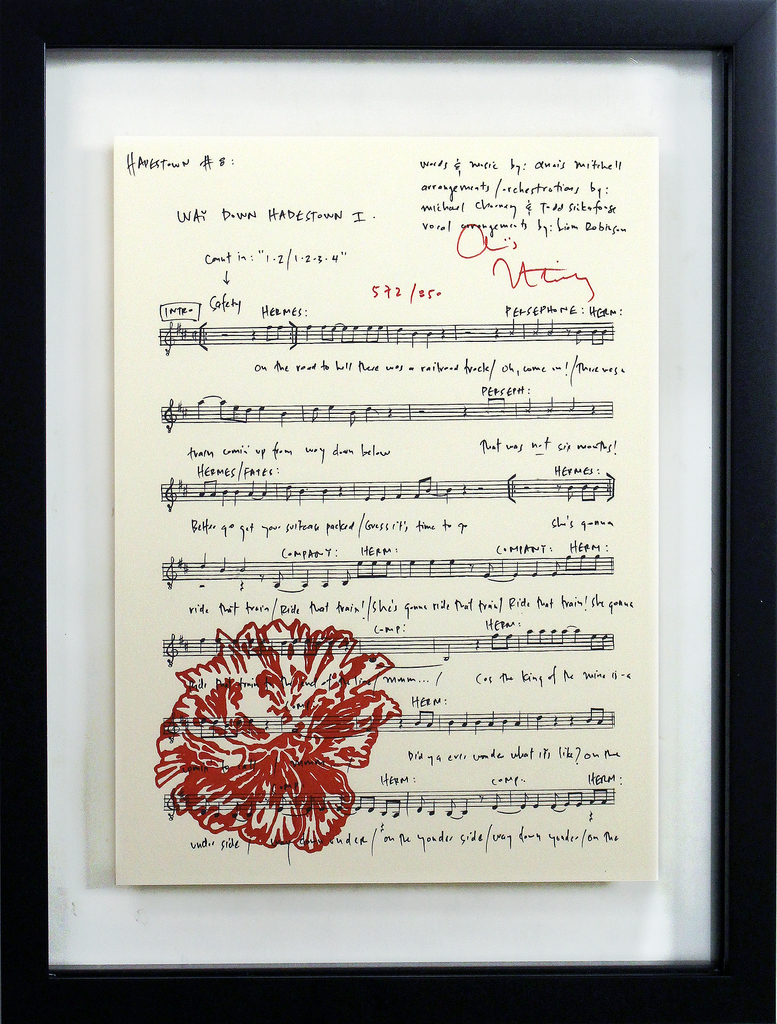 HADESTOWN # 8:
words & music by: anais mitchell
arrangements/orchestrations by:
michael chorney & Todd Sickafoose
vocal arrangements by: Liam Robinson
WAY DOWN HADESTOWN I.
Count in: "1·2/1·2·3·4"
572/850
INTRO Safety HERMES: PERSEPHONE: HERM:
on the road to hell there was a railroad track/ oh, come on!/There was a
PERSEPH:
train comin' up from way down below That was not six months!
HERMES/FATES: HERMES:
Better go get your suitcase packed/Guess it's time to go She's gonna
COMPANY: HERM: COMPANY: HERM:
ride that train/Ride that train!/She's gonna ride that train/Ride that train! She gonna
COMP: HERM:
Ride that train to the end of the line/mmm.../ Cos the king of the mine is-a
HERM:
comin' to call Did ya ever wonder what it's like? on the
HERM: COMP: HERM:
under side/way down under/on the yonder side/way down yonder/on the